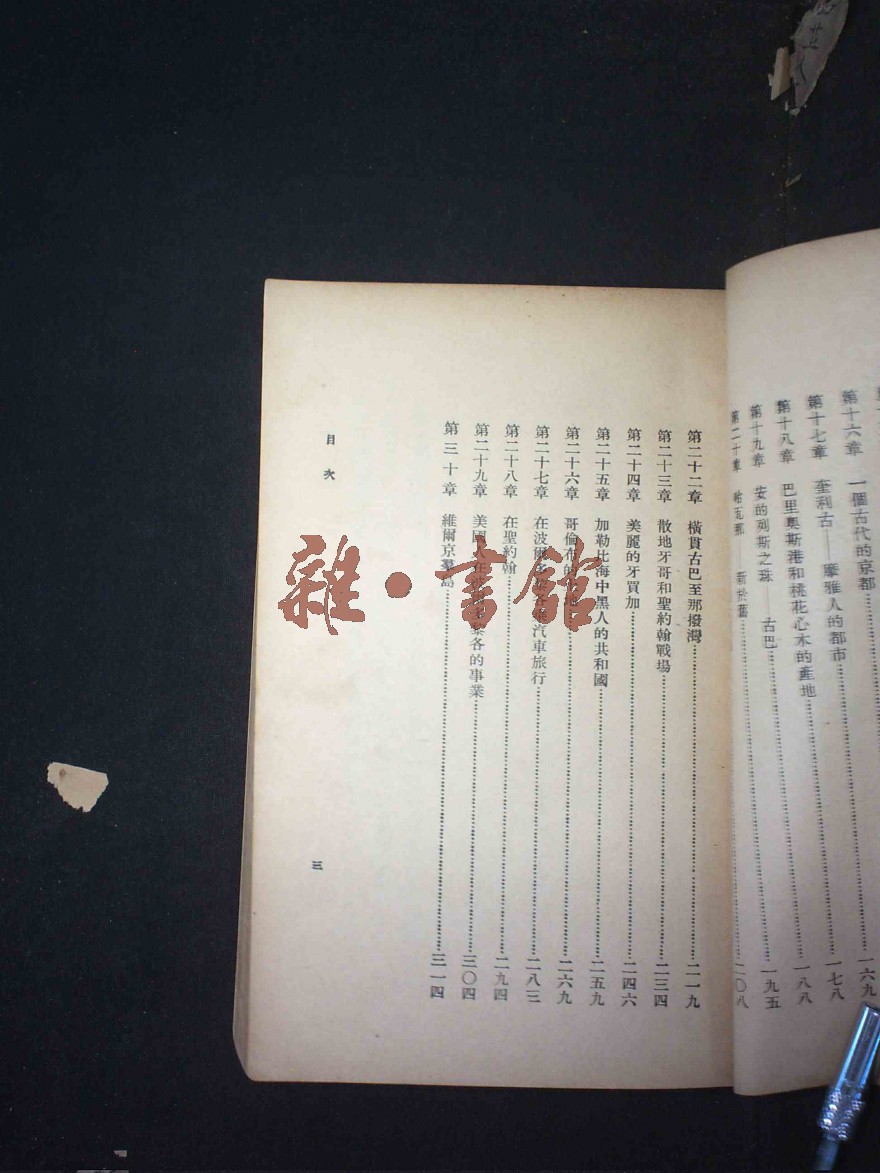 第十六章 一個古代的京都……一六九
第十七章 奎利古——摩雅人的都市……一七八
第十八章 巴里奧斯港和桃花心木的產地……一八八
第十九章 安的列斯之珠——古巴……一九五
第二十章 哈瓦那——新於舊……二〇八
第二十二章 橫貫古巴至那撥灣……二一九
第二十三章 散地牙哥和聖約翰戰場……二三四
第二十四章 美麗的牙買加……二四六
第二十五章 加勒比海中黑人的共和國……二五九
第二十六章 哥倫布的……二六九
第二十七章 在波爾多黎各乘汽車旅行……二八三
第二十八章 在聖約翰……二九四
第二十九章 美國人在波爾多黎各的事業……三〇四
第三十章 維爾京羣島……三一四
目次
三
雜·書館